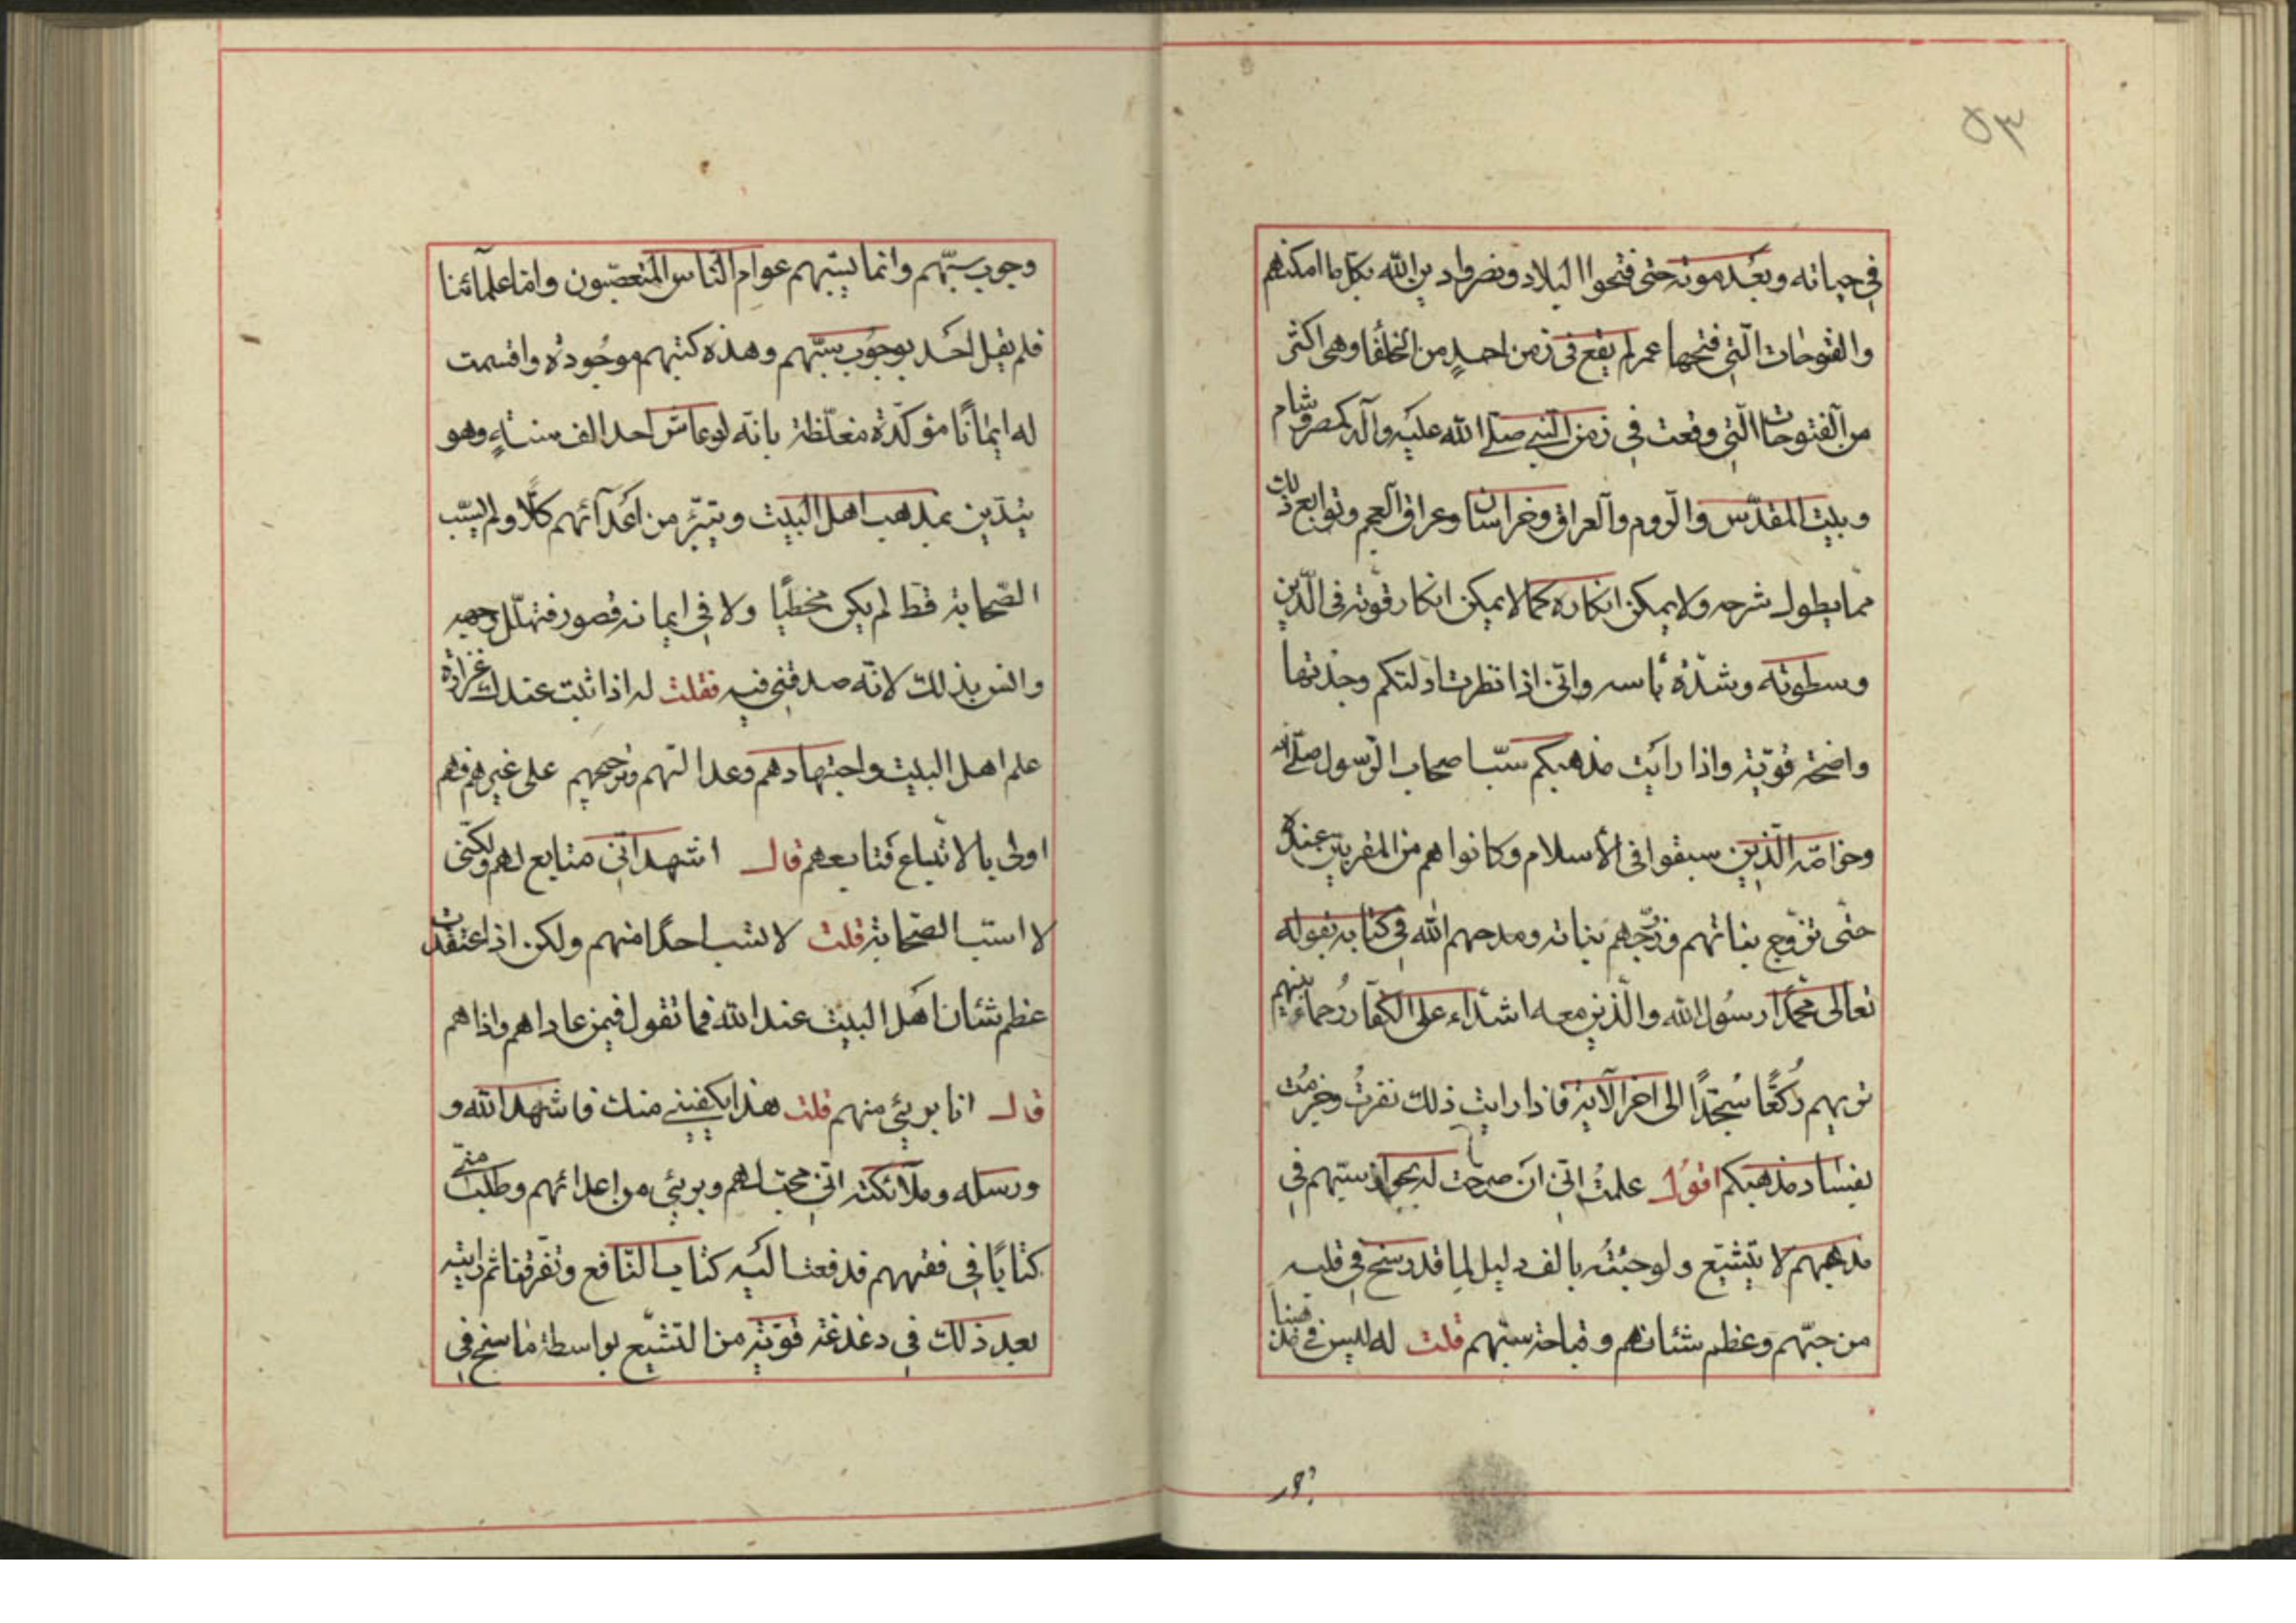 ٥٣
في حياته وبعد موته حتى فتحوا البلاد ونصروا دين الله بكل ما امكنهم
والفتوحات الّتي فتحها عمر لم يقع في زمن احدٍ من الخلفا وهي اكثر
من الفتوحات الّتي وقعت في زمن النبي صلى الله عليه وآله كمصر وشام
وبيت المقدّس والروم والعراق وخراسان وعراق العجم وتوابع ذلك
ممّا يطول شرحه ولا يمكن انكاره كما لا يمكن انكار قوّته في الدّين
وسطوته وشدّة بأسه وانّي اذا نظرت ادلتكم وجدتها
واضحة قويّة واذا رايت مذهبكم سبّ اصحاب الرّسول صلى الله
وخواصّه الّذين سبقوا في الأسلام وكانوا هم من المقربين عنده
حتّى تزوّج بناتهم وزوّجهم بناته ومدحهم الله في كتابه بقوله
تعالى محمّدا رسول الله والّذين معه اشدّاء على الكفّار رُحماء بينهم
تريهم رُكّعًا سُجّدًا الى اخر الآية فاذا رايت ذلك نفرتُ وجزمت
بفساد مذهبكم اقول علمتُ انّي ان صرحت له بجواز سبّهم في
مذهبهم لا يتشيّع ولو جئتُه بالف دليل لِما قد رسخ في قلبه
من حبّهم وعظم شئانهم وقباحة سبّهم قلت له ليس في مذهبنا
وجوب سبّهم وانما يسبّهم عوام النّاس المتعصّبون وامّا علمآئنا
فلم يقل احد بوجوب سبّهم وهذه كتبهم موجودة واقسمت
له ايمانًا مؤكّدة مغلّظة بانّه لو عاش احد الف سنةٍ وهو
يتديّن بمذهب اهل البيت ويتبرّء من اعدآئهم كلّا ولم يسبّ
الصّحابة قط لم يكن مخطئا ولا في ايمانه قصور فتهلّل وجهه
وانس بذلك لانّه صدقني فيه فقلت له اذا ثبت عندك غزارة
علم اهل البيت واجتهادهم وعدالتهم وترجيحهم على غيرهم فهم
اولى بالاتّباع فتابعهم قال اشهد انّي متابع لهم ولكنّي
لا اسبّ الصّحابة قلت لا تسب احدًا منهم ولكن اذا اعتقدت
عظم شئان اهل البيت عند الله فما تقول فيمن عاداهم واذاهم
قال انا بريئ منهم قلت هذا يكفيني منك فاشهد الله و
ورسله وملآئكته انّي محبّ لهم وبريئ من اعدائهم وطلب منّي
كتابًا في فقههم فدفعت اليه كتاب النّافع وتفرقنا ثم رايته
بعد ذلك في دغدغة قويّة من التّشيّع بواسطة ما سنح في